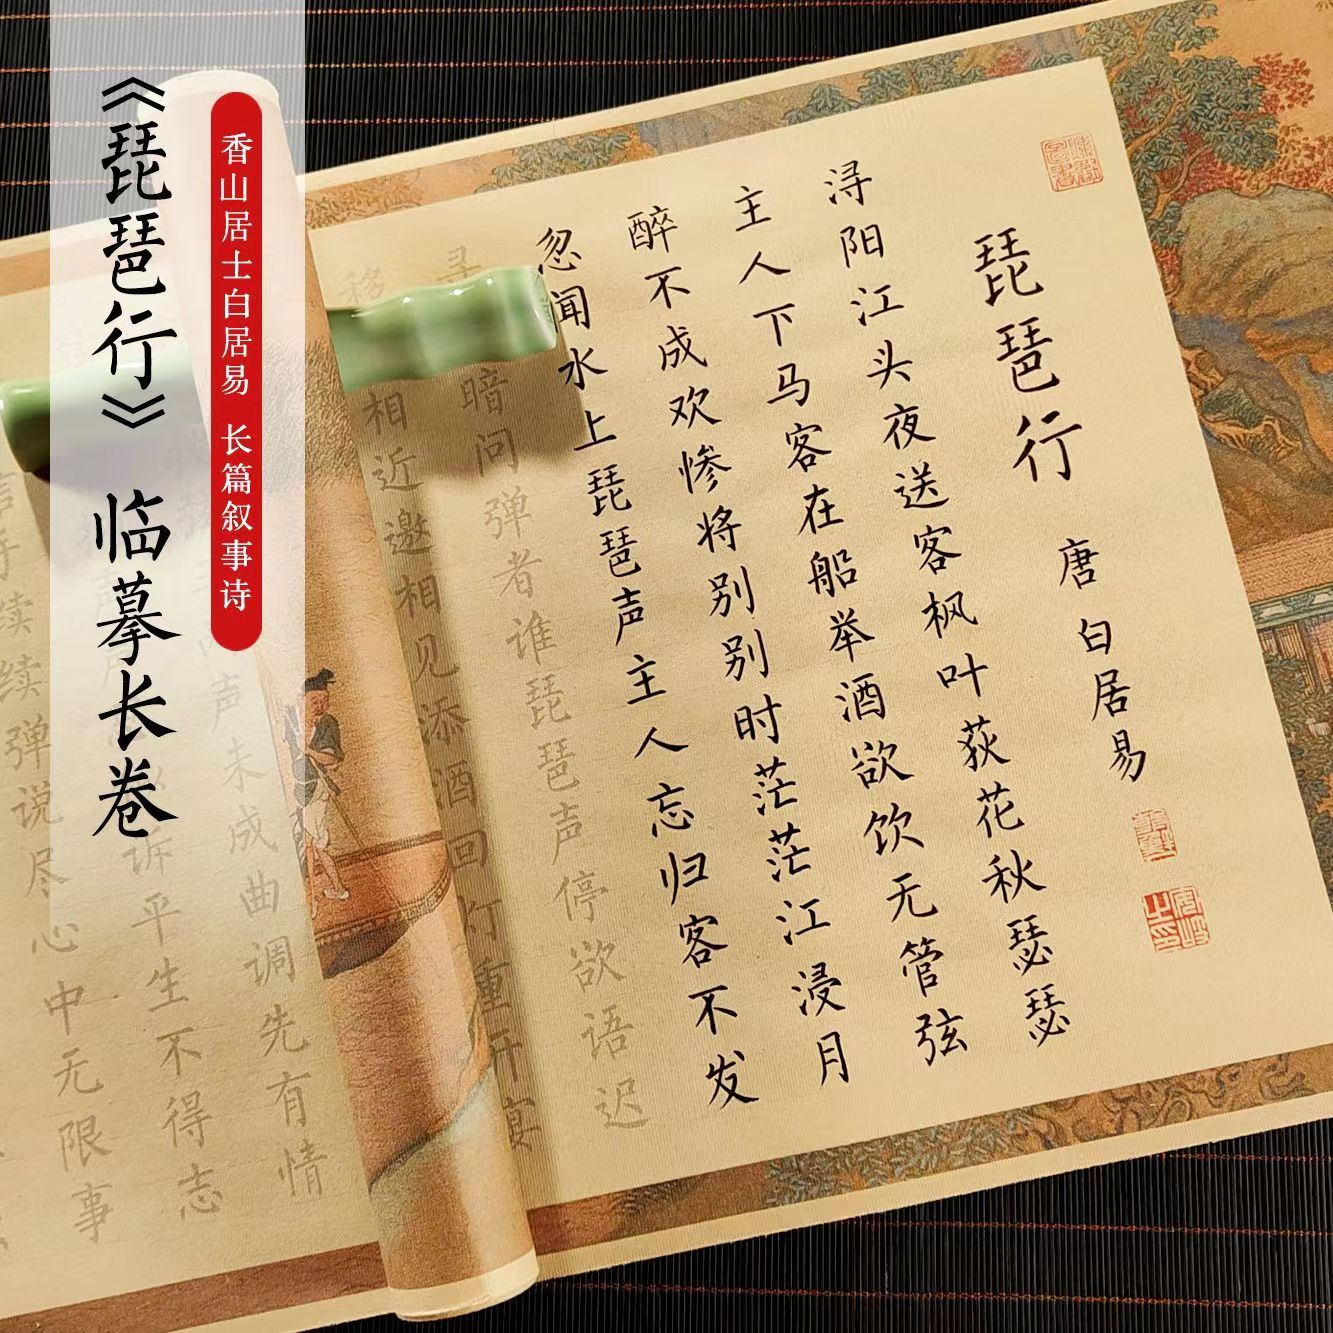 《琵琶行》临摹长卷
香山居士白居易 长篇叙事诗
琵琶行 唐 白居易
浔阳江头夜送客枫叶荻花秋瑟瑟
主人下马客在船举酒欲饮无管弦
醉不成欢惨将别别时茫茫江浸月
忽闻水上琵琶声主人忘归客不发
寻暗问弹者谁琵琶声停欲语迟
移相近邀相见添酒回灯重开宴
声未成曲调先有情
诉平生不得志
手续续弹说尽心中无限事